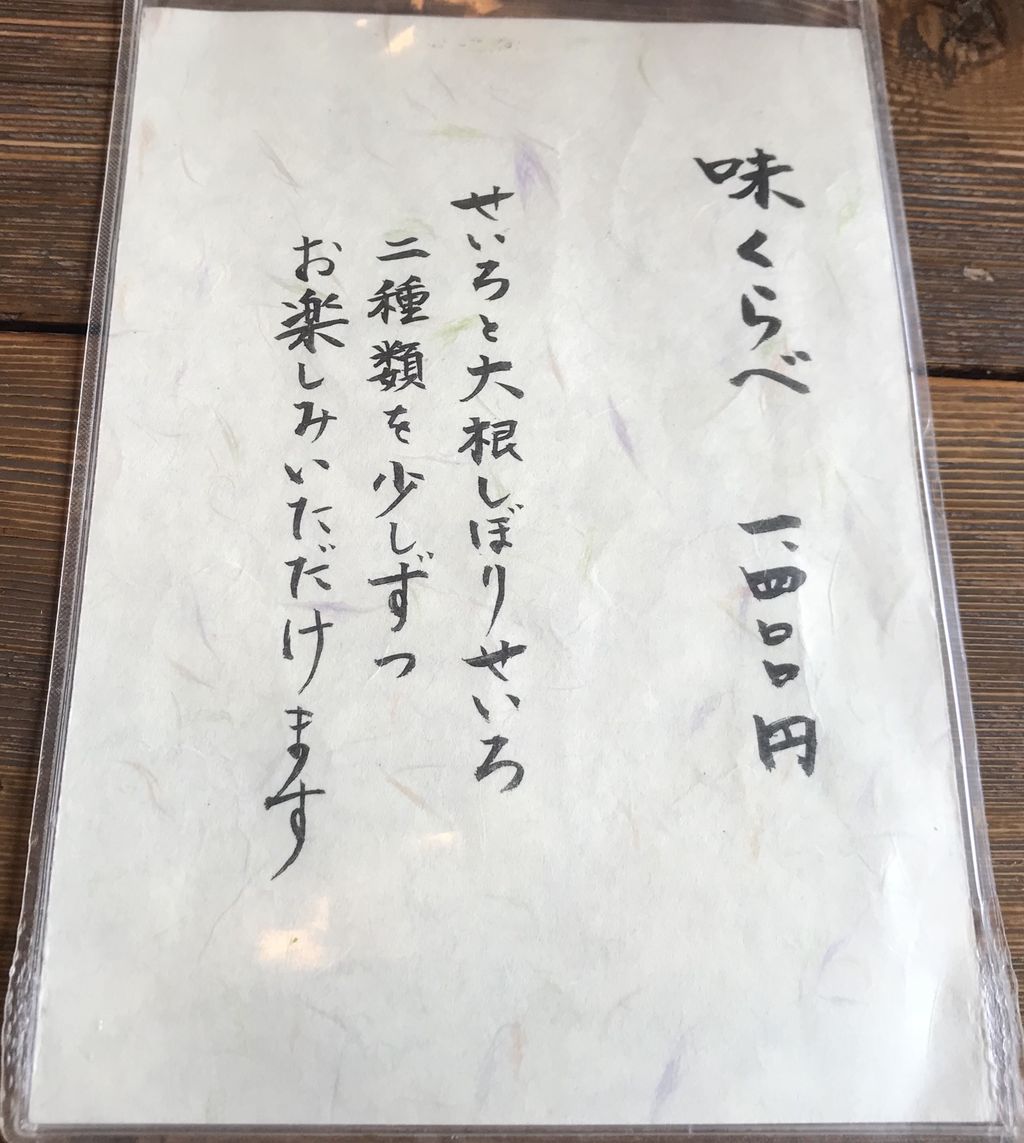 味くらべ 一、四〇〇円
せいろと大根しぼりせいろ
二種類を少しずつ
お楽しみいただけます